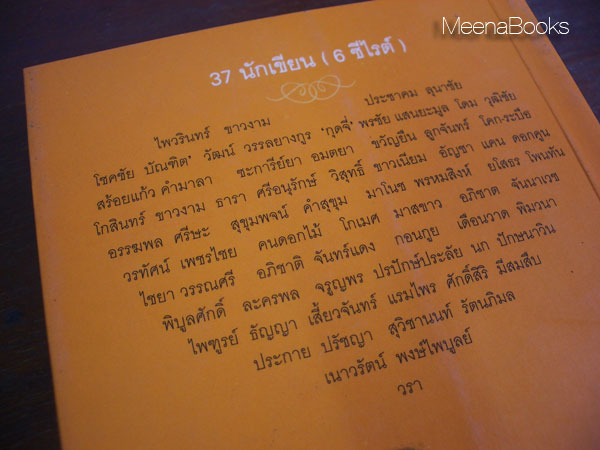 MeenaBooks
37 นักเขียน ( 6 ซีไรต์ )
ไพวรินทร์ ขาวงาม ประชาคม ลุนาชัย
โชคชัย บัณฑิต' วัฒน์ วรรลยางกูร 'กุดจี่' พรชัย แสนยะมูล โดม วุฒิชัย
สร้อยแก้ว คำมาลา ซะการีย์ยา อมตยา ขวัญยืน ลูกจันทร์ โคกระบือ
โกสินทร์ ขาวงาม ธารา ศรีอนุรักษ์ วิสุทธิ์ ขาวเนียม อัญชา แดน ดอกคูน
อรรฆพล ศรีษะ สุขุมพจน์ คำสุขุม มาโนช พรหมสิงห์ ยโสธร โพนทัน
วรทัศน์ เพชรไชย คนดอกไม้ โกเมศ มาสขาว อภิชาติ จันนาเวช
ไชยา วรรณศรี อภิชาติ จันทร์แดง กอนกูย เดือนวาด พิมวนา
พิบูลศักดิ์ ละครพล จรูญพร ปรปักษ์ประลัย นก ปักษนาวิน
ไพฑูรย์ ธัญญา เสี้ยวจันทร์ แรมไพร ศักดิ์สิริ มีสมสืบ
ประกาย ปรัชญา สุวิชานนท์ รัตนภิมล
เนาวรัตน์ พงษ์ไพบูลย์
วรา